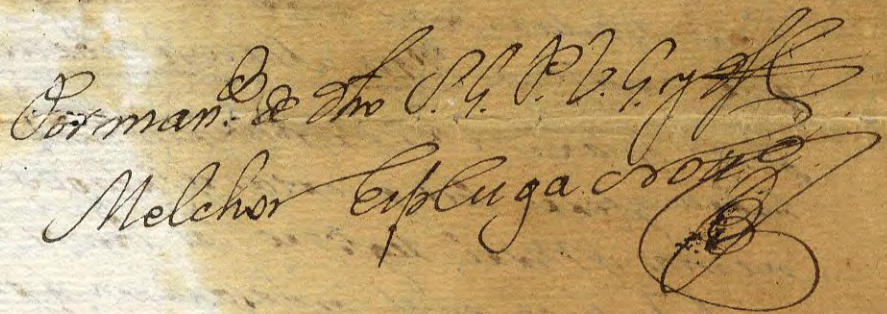 Por man.do de dho S. G. P. V. G. y Offl
Melchor Espluga Notto